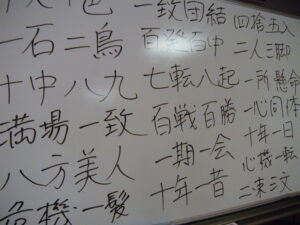 十人十色
一石二鳥
十中八九
満場一致
八方美人
危機一髪
一致団結
百発百中
七転八起
百戦百勝
一期一会
十年一昔
四捨五入
二人三脚
一所懸命
一心同体
十年一日
心機一転
二束三文